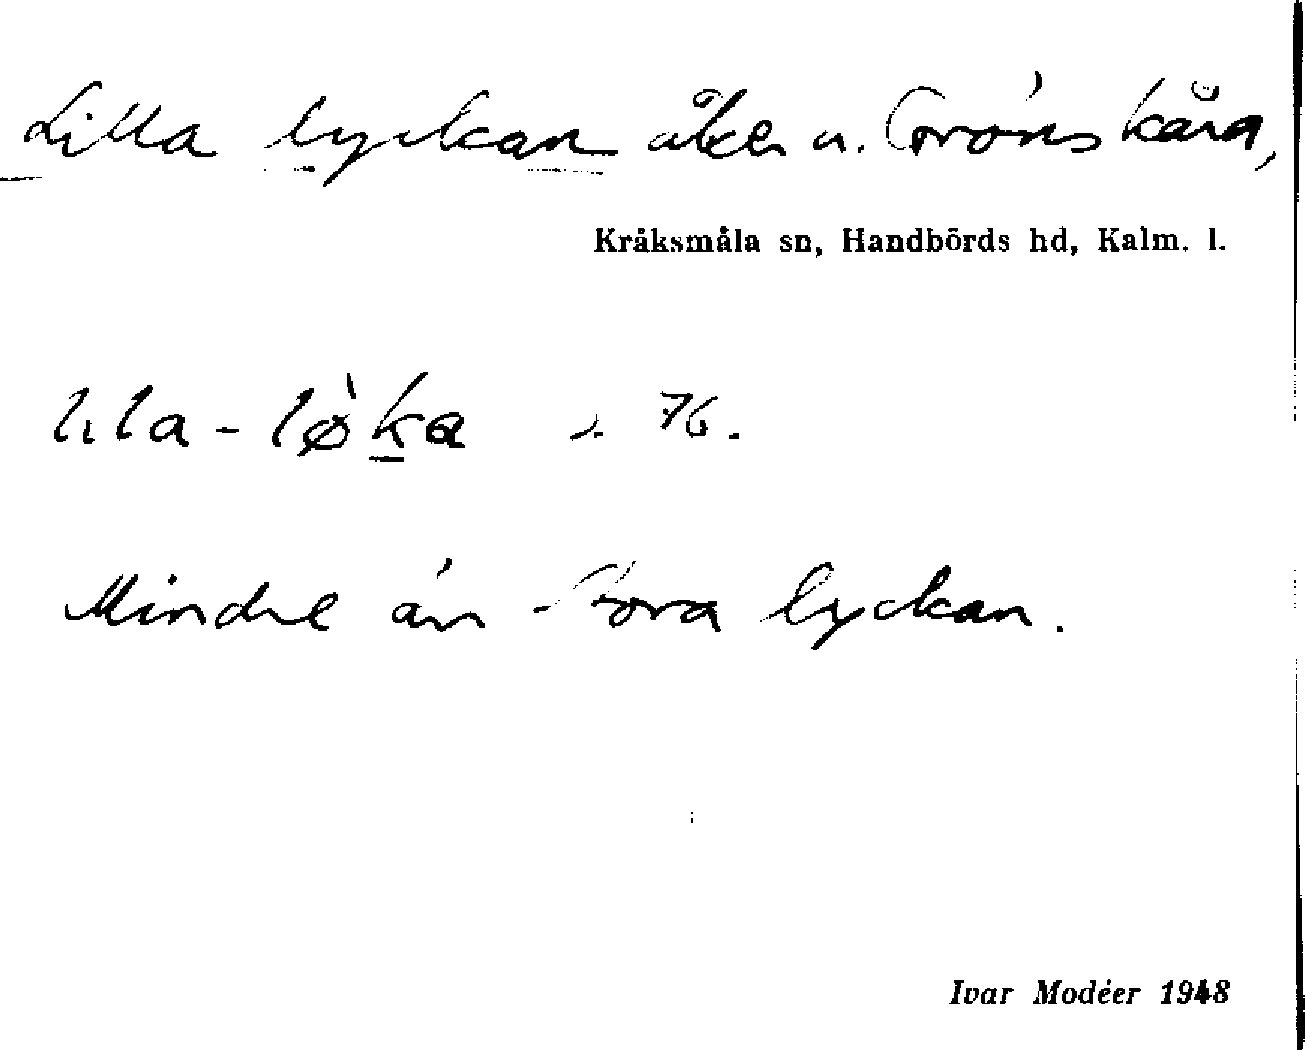 Lilla lyckan åker n. Grönskåra,
Kråksmåla sn, Handbörds hd, Kalm. l.
lıla - lø̀ka 76.
Mindre än Stora lyckan.
Ivar Modéer 1948